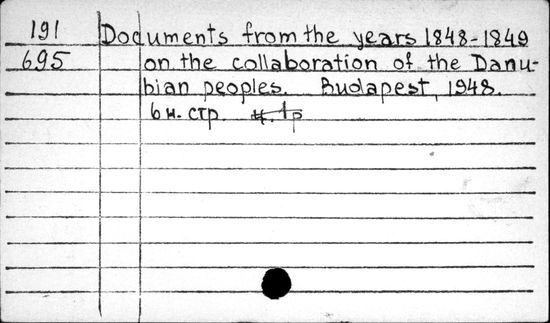 191 Documents from the years 1848-1849
695 on the collaboration of the Danu-
bian peoples. Budapest, 1948.
6 н. стр.